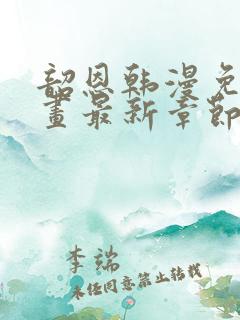 韶恩韩漫免
畫最新章節
李端
未经同意禁止转载